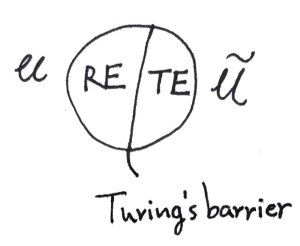 U RE TE Ũ
Turing's barrier